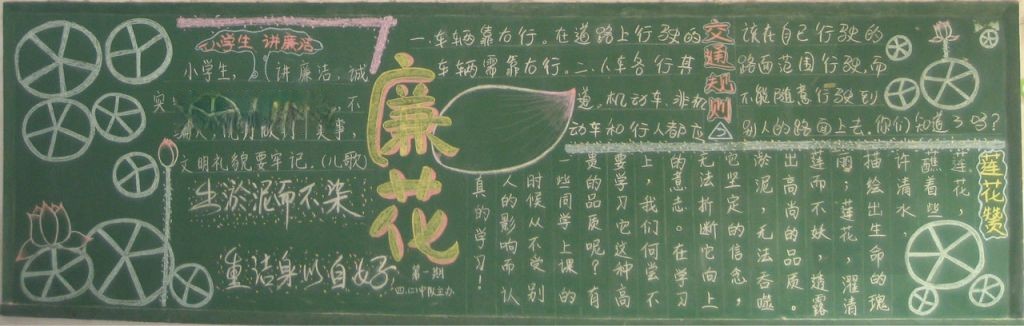 小学生 讲廉洁
小学生，讲廉洁，诚
实
不
文明礼貌要牢记。（儿歌）
出淤泥而不染
重洁身以自好
廉花
第一期
中队主办
交通规则
一、车辆靠右行。在道路上行驶的
车辆需靠右行。二、人车各行其
道。机动车、非机
动车和行人都应
该在自己行驶的
路面范围行驶，而
不能随意行驶到
别人的路面上去。你们知道了吗？
莲花赞
莲花，
蘸着些
许清水，
描绘出生命的瑰
丽；莲花，濯清
莲而不妖，透露
出高尚的品质。
淤泥，无法吞噬
它坚定的信念，
无法折断它向上
的意志。在学习
上，我们何尝不
要学习它这种高
贵的品质呢？有
一些同学上课的
时候从不受别
人的影响而认
真的学习！